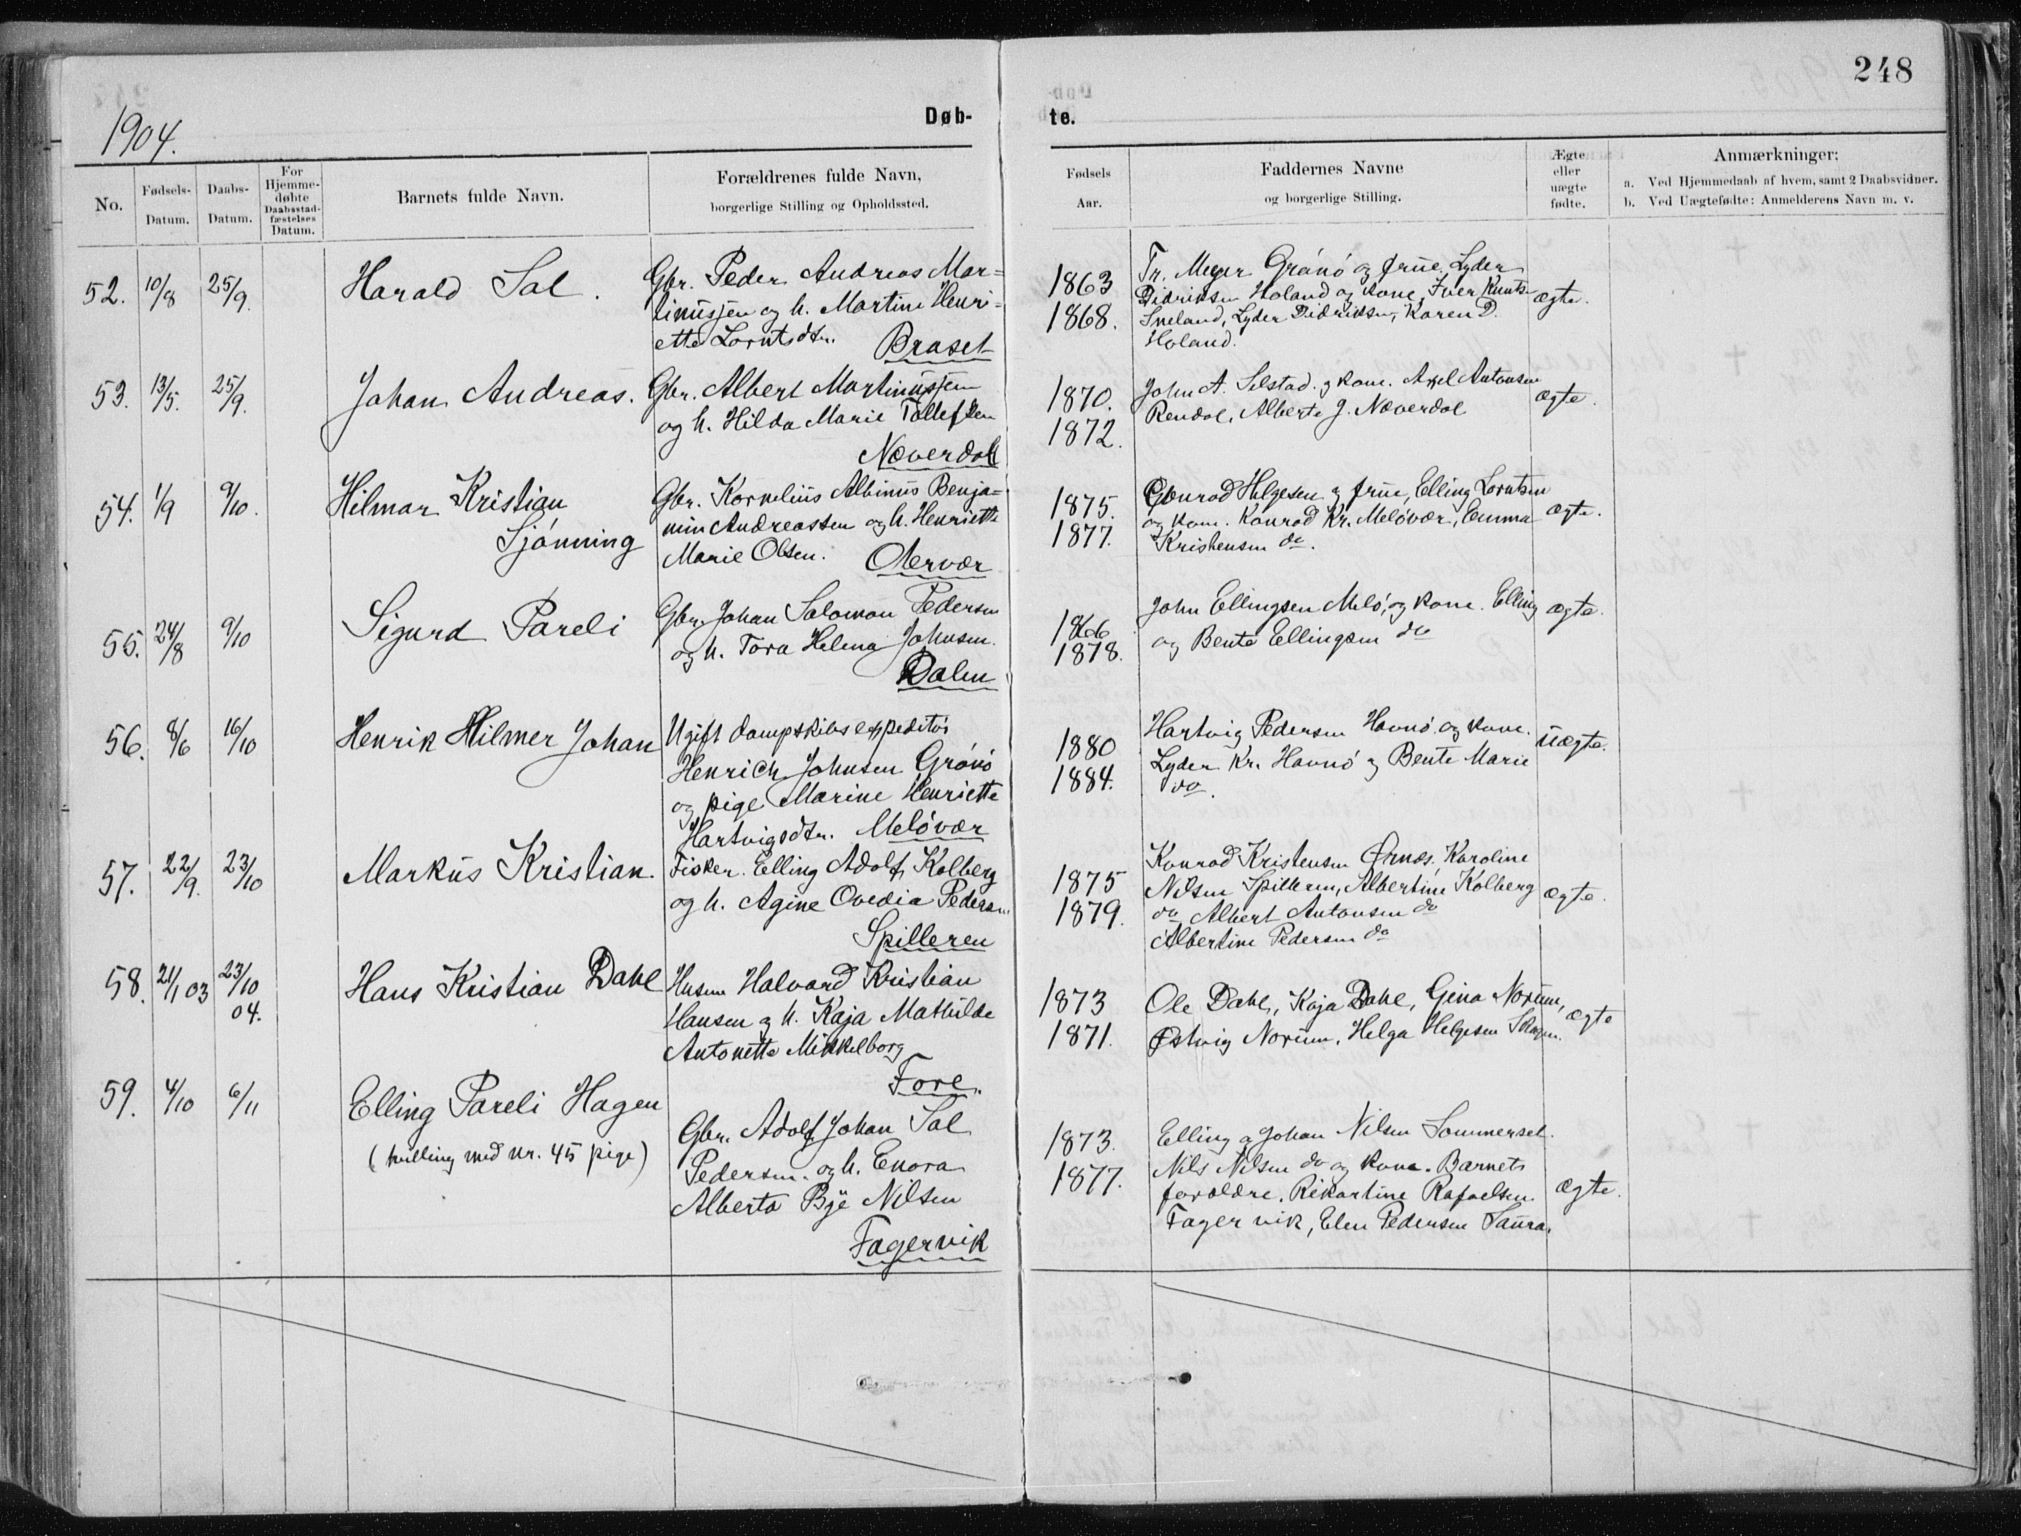 248
1904.
Døb-
te.
No.
Fødsels-
Datum.
Daabs-
Datum.
For
Hjemme-
døbte
Daabsstad-
fæstelses
Datum.
Barnets fulde Navn.
Forældrenes fulde Navn,
borgerlige Stilling og Opholdssted.
Fødsels
Aar.
Faddernes Navne
og borgerlige Stilling.
Ægte
eller
uægte
fødte.
Anmærkninger:
a. Ved Hjemmedaab af hvem, samt 2 Daabsvidner.
b. Ved Uægtefødte: Anmelderens Navn m. v.
52. 10/8 25/9.
Harald Sal.
Gbr. Peder Andreas Mar=
tinussen og h. Martine Henri=
ette Lorntsdtr.
Braset
1863
1868.
Tr. Meyer Grønø og frue, Lyder
Didriksen Holand og kone, Iver Knuts-
Sneland, Lyder Didriksen, Karen D.
Holand.
ægte.
53. 13/5. 25/9.
Johan Andreas.
Gbr. Albert Martinussen
og h. Hilda Marie Tollefsen
Næverdal
1870.
1872.
John A. Selstad og kone. Axel Antonsen
Rendal, Alberte J. Næverdal
ægte.
54. 1/9 9/10.
Hilmar Kristian
Sjønning
Gbr. Kornelius Albinus Benja=
min Andreassen og h. Henriette
Marie Olsen.
Otervær
1875.
1877.
Conrad Helgesen og frue, Elling Lorntsen
og kone. Konrad Kr. Meløvær, Emma
Kristensen do.
ægte.
55. 24/8 9/10
Sigurd Pareli
Gbr. Johan Salomon Pedersen
og h. Tora Helena Johnsen.
Dalen
1866
1878.
John Ellingsen Melø, og kone. Elling
og Bente Ellingsen do
ægte.
56. 8/6 16/10
Henrik Hilmer Johan
Ugift dampskibsexpeditør
Henrich Johnsen Grønø
og pige Marine Henriette
Hartvigsdtr. Meløvær
1880
1884.
Hartvig Pedersen Havnø og kone.
Lyder Kr. Havnø og Bente Marie
do.
uægte.
57. 22/9. 23/10
Markus Kristian.
Fisker. Elling Adolf Kolberg
og h. Agine Ovedia Pedersen
Spilleren
1875
1879.
Konrad Kristensen Ørnes. Karoline
Nilsen Spilleren, Albertine Kolberg
do Albert Antonsen do
Albertine Pedersen do
ægte.
58. 21/1 03 23/10
04.
Hans Kristian Dahl
Husm Halvard Kristian
Hansen og h. Kaja Mathilde
Antonette Mikkelborg
Fore.
1873
1871.
Ole Dahl, Kaja Dahl, Gina Norum,
Østvig Norum. Helga Helgesen
ægte
59. 4/10 6/11
Elling Pareli Hagen
(tvilling med nr. 45 pige)
Gbr. Adolf Johan Sal
Pedersen. og h. Enora
Alberta Bye Nilsen
Fagervik
1873.
1877.
Elling og Johan Nilsen Sommerset.
Nils Nilsen do og kone. Barnets
forældre. Rikartine Rafaelsen
Fagervik, Elen Pedersen Saura.
ægte.